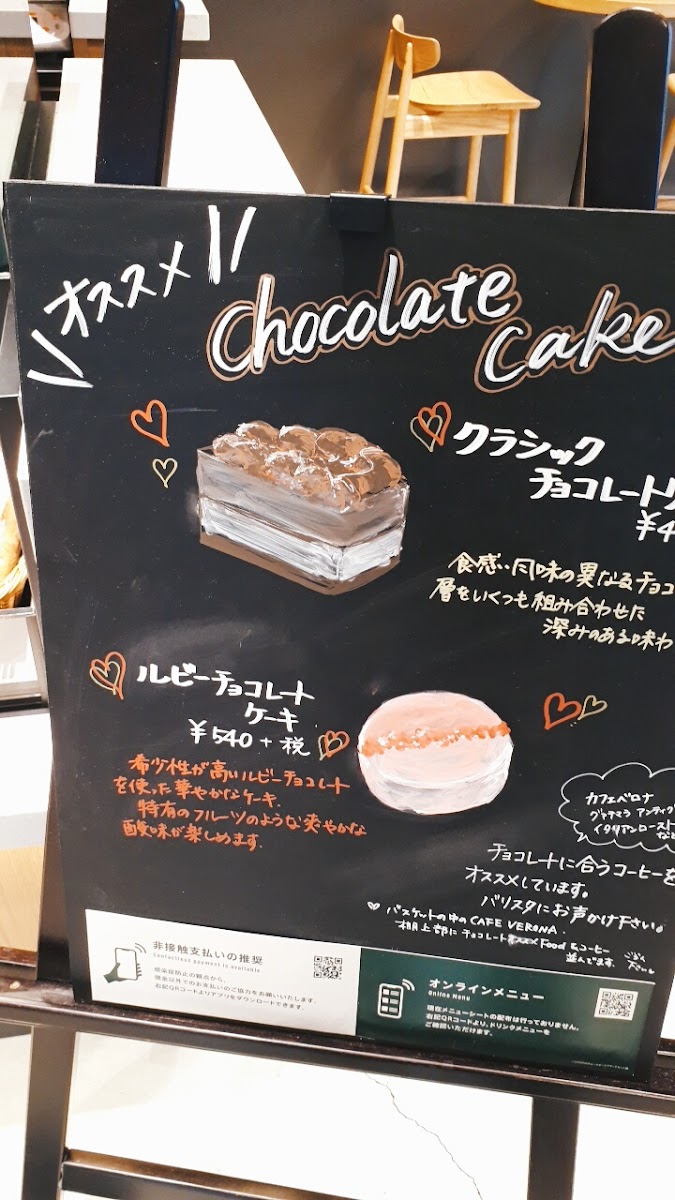 オススメ
Chocolate
Cake
クラシック
チョコレート
¥4
食感・風味の異なるチョコ
層をいくつも組み合わせた
深みのある味わ
ルビーチョコレート
ケーキ
¥540+税
希少性が高いルビーチョコレート
を使った華やかなケーキ.
特有のフルーツのような爽やかな
酸味が楽しめます.
カフェベロナ
グァテマラ アンティグ
イタリアンロースト
など
チョコレートに合うコーヒーを
オススメしています。
バリスタにお声かけ下さい。
バスケットの中の CAFE VERONA.
棚上部に チョコレート Food とコーヒー
並んでます.
ごらん
下さい
非接触支払いの推奨
Contactless payment is available
感染症防止の観点から、
現金以外でのお支払いのご協力をお願いいたします。
右記QRコードよりアプリをダウンロードできます。
オンラインメニュー
Online Menu
現在メニューシートの配布は行っておりません。
右記QRコードより、ドリンクメニューを
ご確認いただけます。